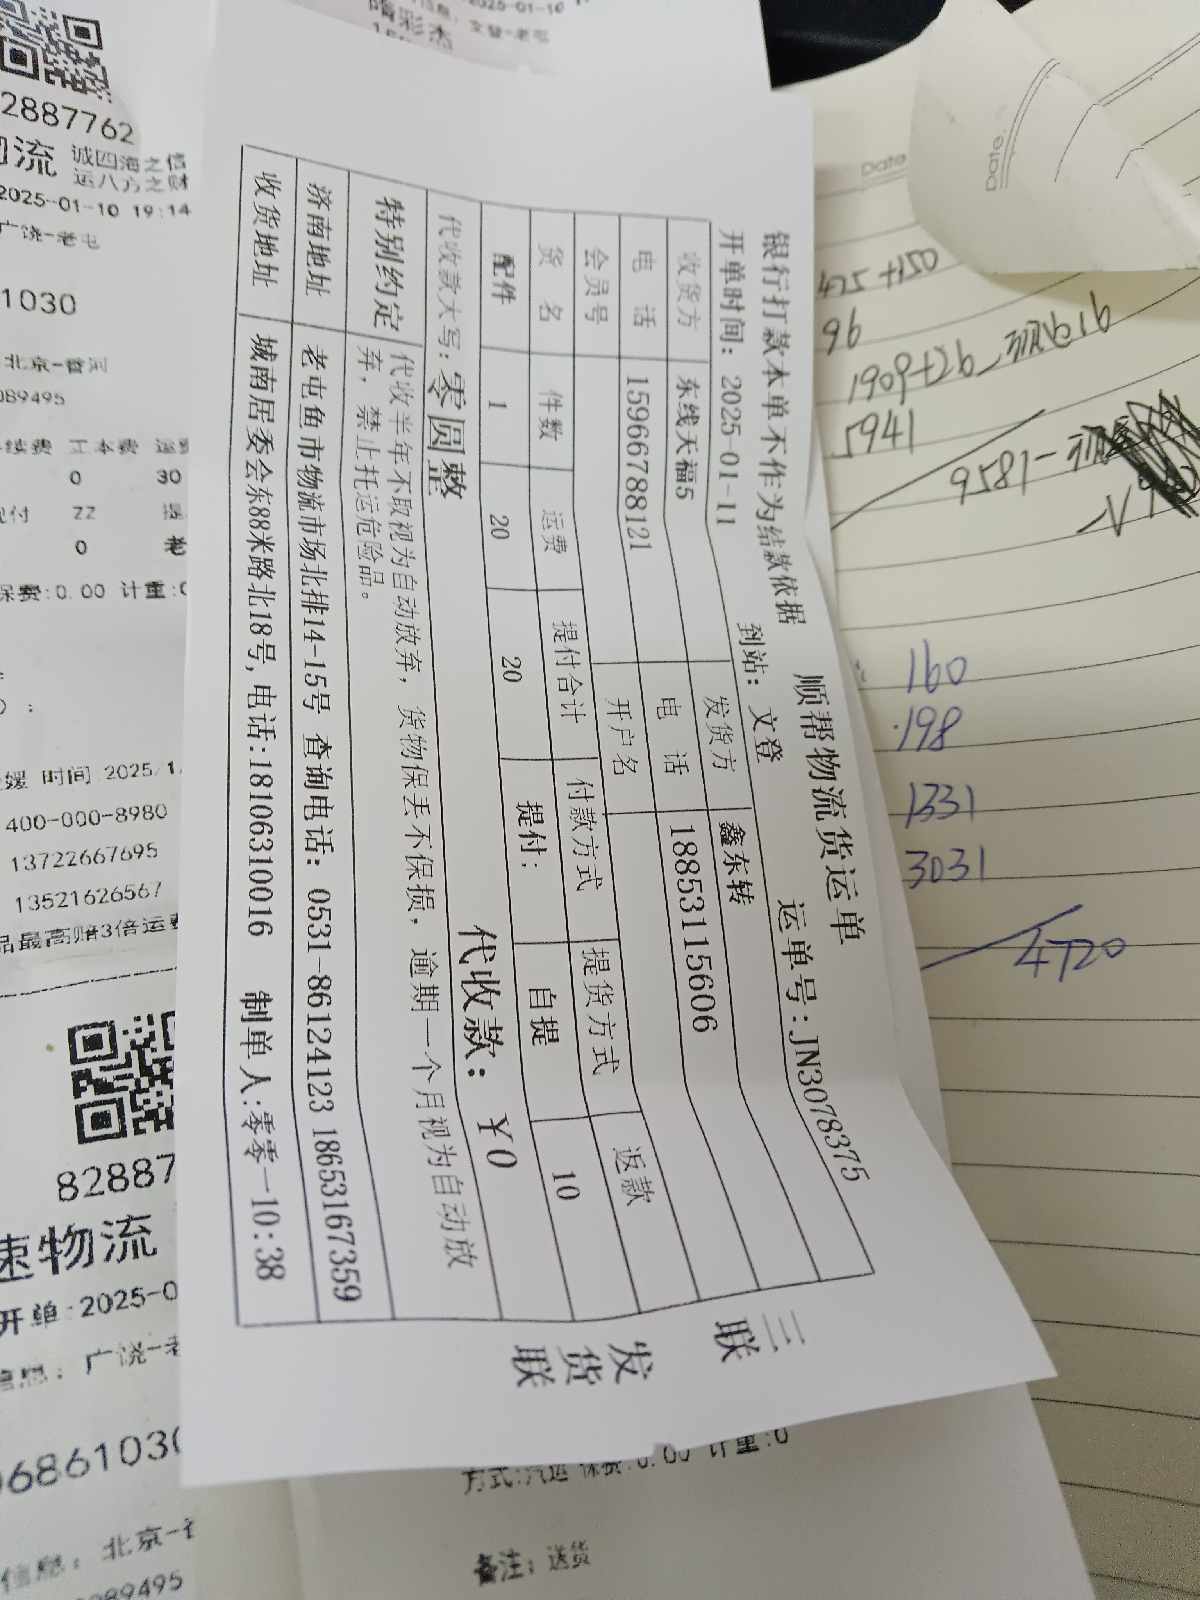 顺帮物流货运单
银行打款本单不作为结款依据
运单号:JN3078375
开单时间: 2025-01-11 到站: 文登
收货方 东线天福5 发货方 鑫东转
电 话 15966788121 电 话 18853115606
会员号 开户名
货 名 件数 运费 提付合计 付款方式 提货方式 返款
配件 1 20 20 提付: 自提 10
代收款大写: 零圆整 代收款: ¥0
特别约定 代收半年不取视为自动放弃, 货物保丢不保损, 逾期一个月视为自动放
弃, 禁止托运危险品。
济南地址 老屯鱼市物流市场北排14-15号 查询电话: 0531-86124123 18653167359
收货地址 城南居委会东88米路北18号, 电话:18106310016 制单人:零零一10:38
三联
发货联
2887762
物流 诚四海之信
运八方之财
2025-01-10 19:14
广饶-老屯
1030
北京-香河
089495
0 30
0
保费:0.00 计重:
时间 2025/1
400-000-8980
13722667695
13521626567
品最高赔3倍运费
82887
速物流
开单:2025-0
信息: 广饶-老
06861030
信息: 北京-香
089495
方式:汽运 保费:0.00 计重:0
备注: 送货
2025-01-10
Date
Date.
475+150
96
5941
9581
160
198
1331
3031
4720